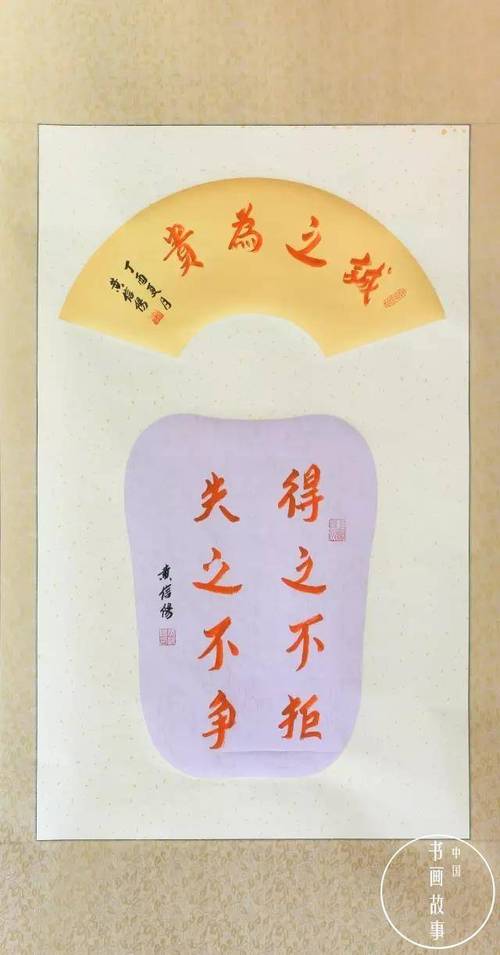 诚之為贵
丁酉夏月
黄信偒
得之不拒
失之不争
黄信偒
中国
书画故事